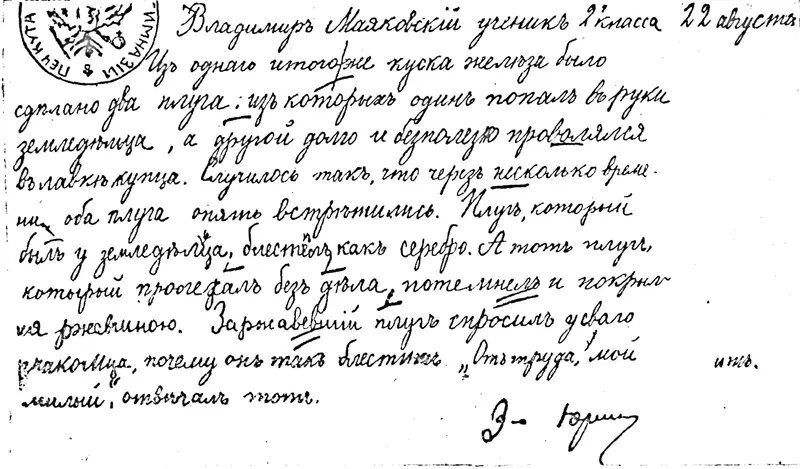 ИМНАЗІИ
Владимиръ Маяковскій ученик 2 класса 22 августъ
Изъ однаго итогоже куска железа было
сдѣлано два плуга; изъ которыхъ одинъ попалъ въ руки
земледѣлца, а другой долго и безполезно провалялся
въ лавкѣ купца. Случилось такъ, что черезъ несколько време-
ни оба плуга опять встрѣтились. Плугъ, который
былъ у земледѣлца, блестѣлъ какъ серебро. А тотъ плугъ,
который пролежалъ безъ дѣла, потемнелъ и покрыл-
ся ржавчиною. Заржавевший плугъ спросилъ у сваго
знакомца, почему онъ такъ блеститъ „Отъ труда, мой итъ.
милый“, отвѣчалъ тотъ.
3-